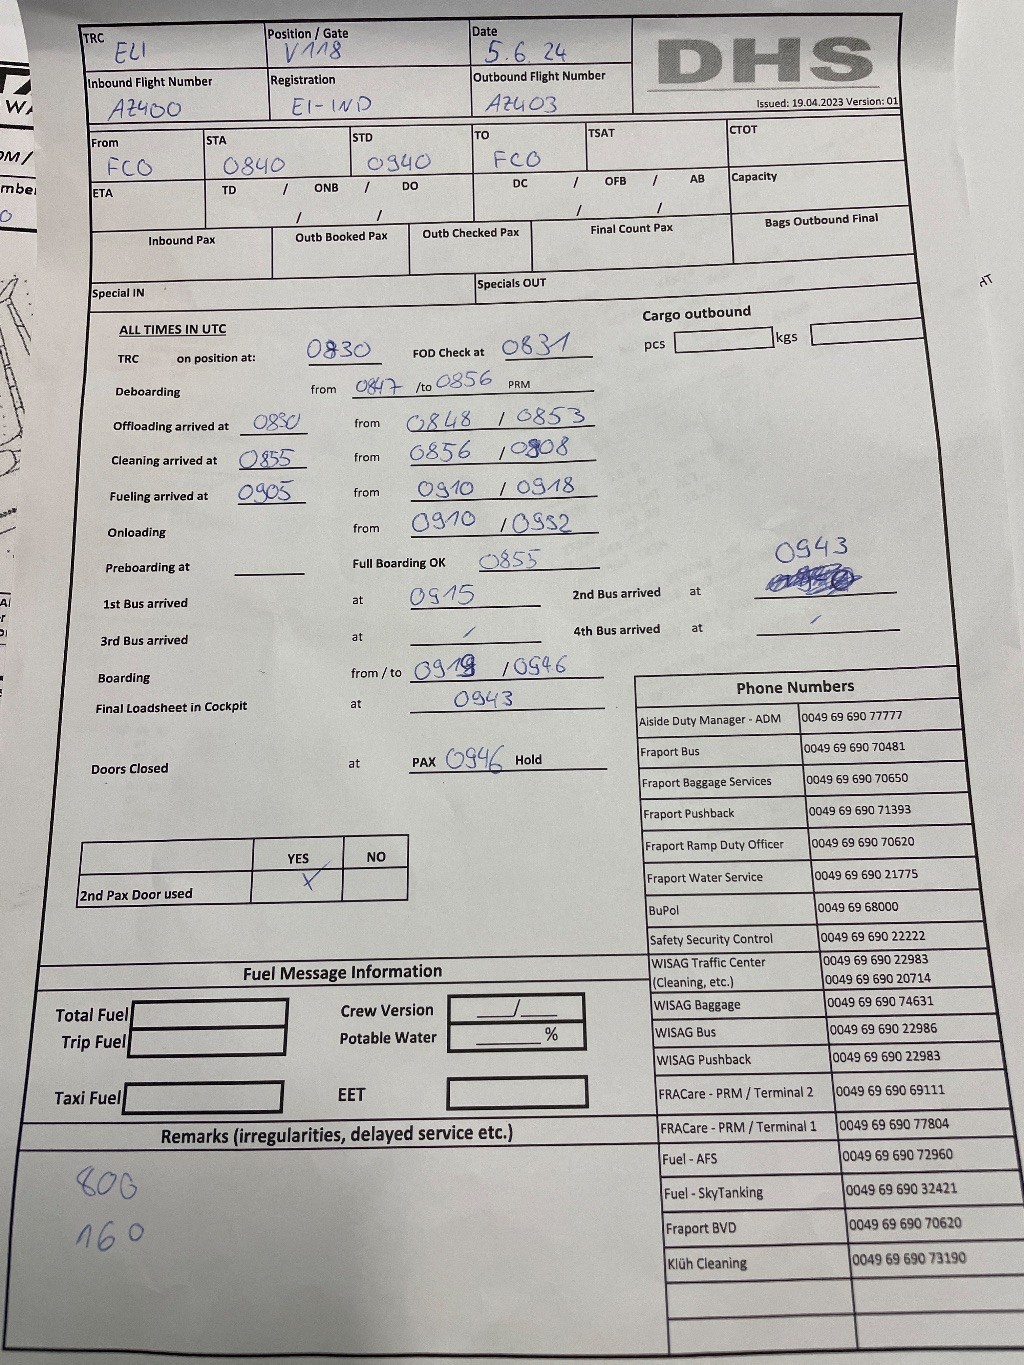 TRC ELI Position / Gate V118 Date 5.6.24 DHS
Inbound Flight Number AZ400 Registration EI-IND Outbound Flight Number AZ403 Issued: 19.04.2023 Version: 01
From FCO STA 0840 STD 0940 TO FCO TSAT CTOT
ETA TD / ONB / DO DC / OFB / AB Capacity
/ / / /
Inbound Pax Outb Booked Pax Outb Checked Pax Final Count Pax Bags Outbound Final
Special IN Specials OUT
ALL TIMES IN UTC Cargo outbound
TRC on position at: 0830 FOD Check at 0831 pcs kgs
Deboarding from 0847 /to 0856 PRM
Offloading arrived at 0830 from 0848 / 0853
Cleaning arrived at 0855 from 0856 / 0908
Fueling arrived at 0905 from 0910 / 0918
Onloading from 0910 / 0932
Preboarding at Full Boarding OK 0855
0943
1st Bus arrived at 0915 2nd Bus arrived at
3rd Bus arrived at / 4th Bus arrived at /
Boarding from / to 0918 / 0946
Final Loadsheet in Cockpit at 0943
Doors Closed at PAX 0946 Hold
YES NO
2nd Pax Door used X
Phone Numbers
Aiside Duty Manager - ADM 0049 69 690 77777
Fraport Bus 0049 69 690 70481
Fraport Baggage Services 0049 69 690 70650
Fraport Pushback 0049 69 690 71393
Fraport Ramp Duty Officer 0049 69 690 70620
Fraport Water Service 0049 69 690 21775
BuPol 0049 69 68000
Safety Security Control 0049 69 690 22222
WISAG Traffic Center 0049 69 690 22983
(Cleaning, etc.) 0049 69 690 20714
WISAG Baggage 0049 69 690 74631
WISAG Bus 0049 69 690 22986
WISAG Pushback 0049 69 690 22983
FRACare - PRM / Terminal 2 0049 69 690 69111
FRACare - PRM / Terminal 1 0049 69 690 77804
Fuel - AFS 0049 69 690 72960
Fuel - SkyTanking 0049 69 690 32421
Fraport BVD 0049 69 690 70620
Klüh Cleaning 0049 69 690 73190
Fuel Message Information
Total Fuel Crew Version ___/___
Trip Fuel Potable Water ______ %
Taxi Fuel EET
Remarks (irregularities, delayed service etc.)
800
160